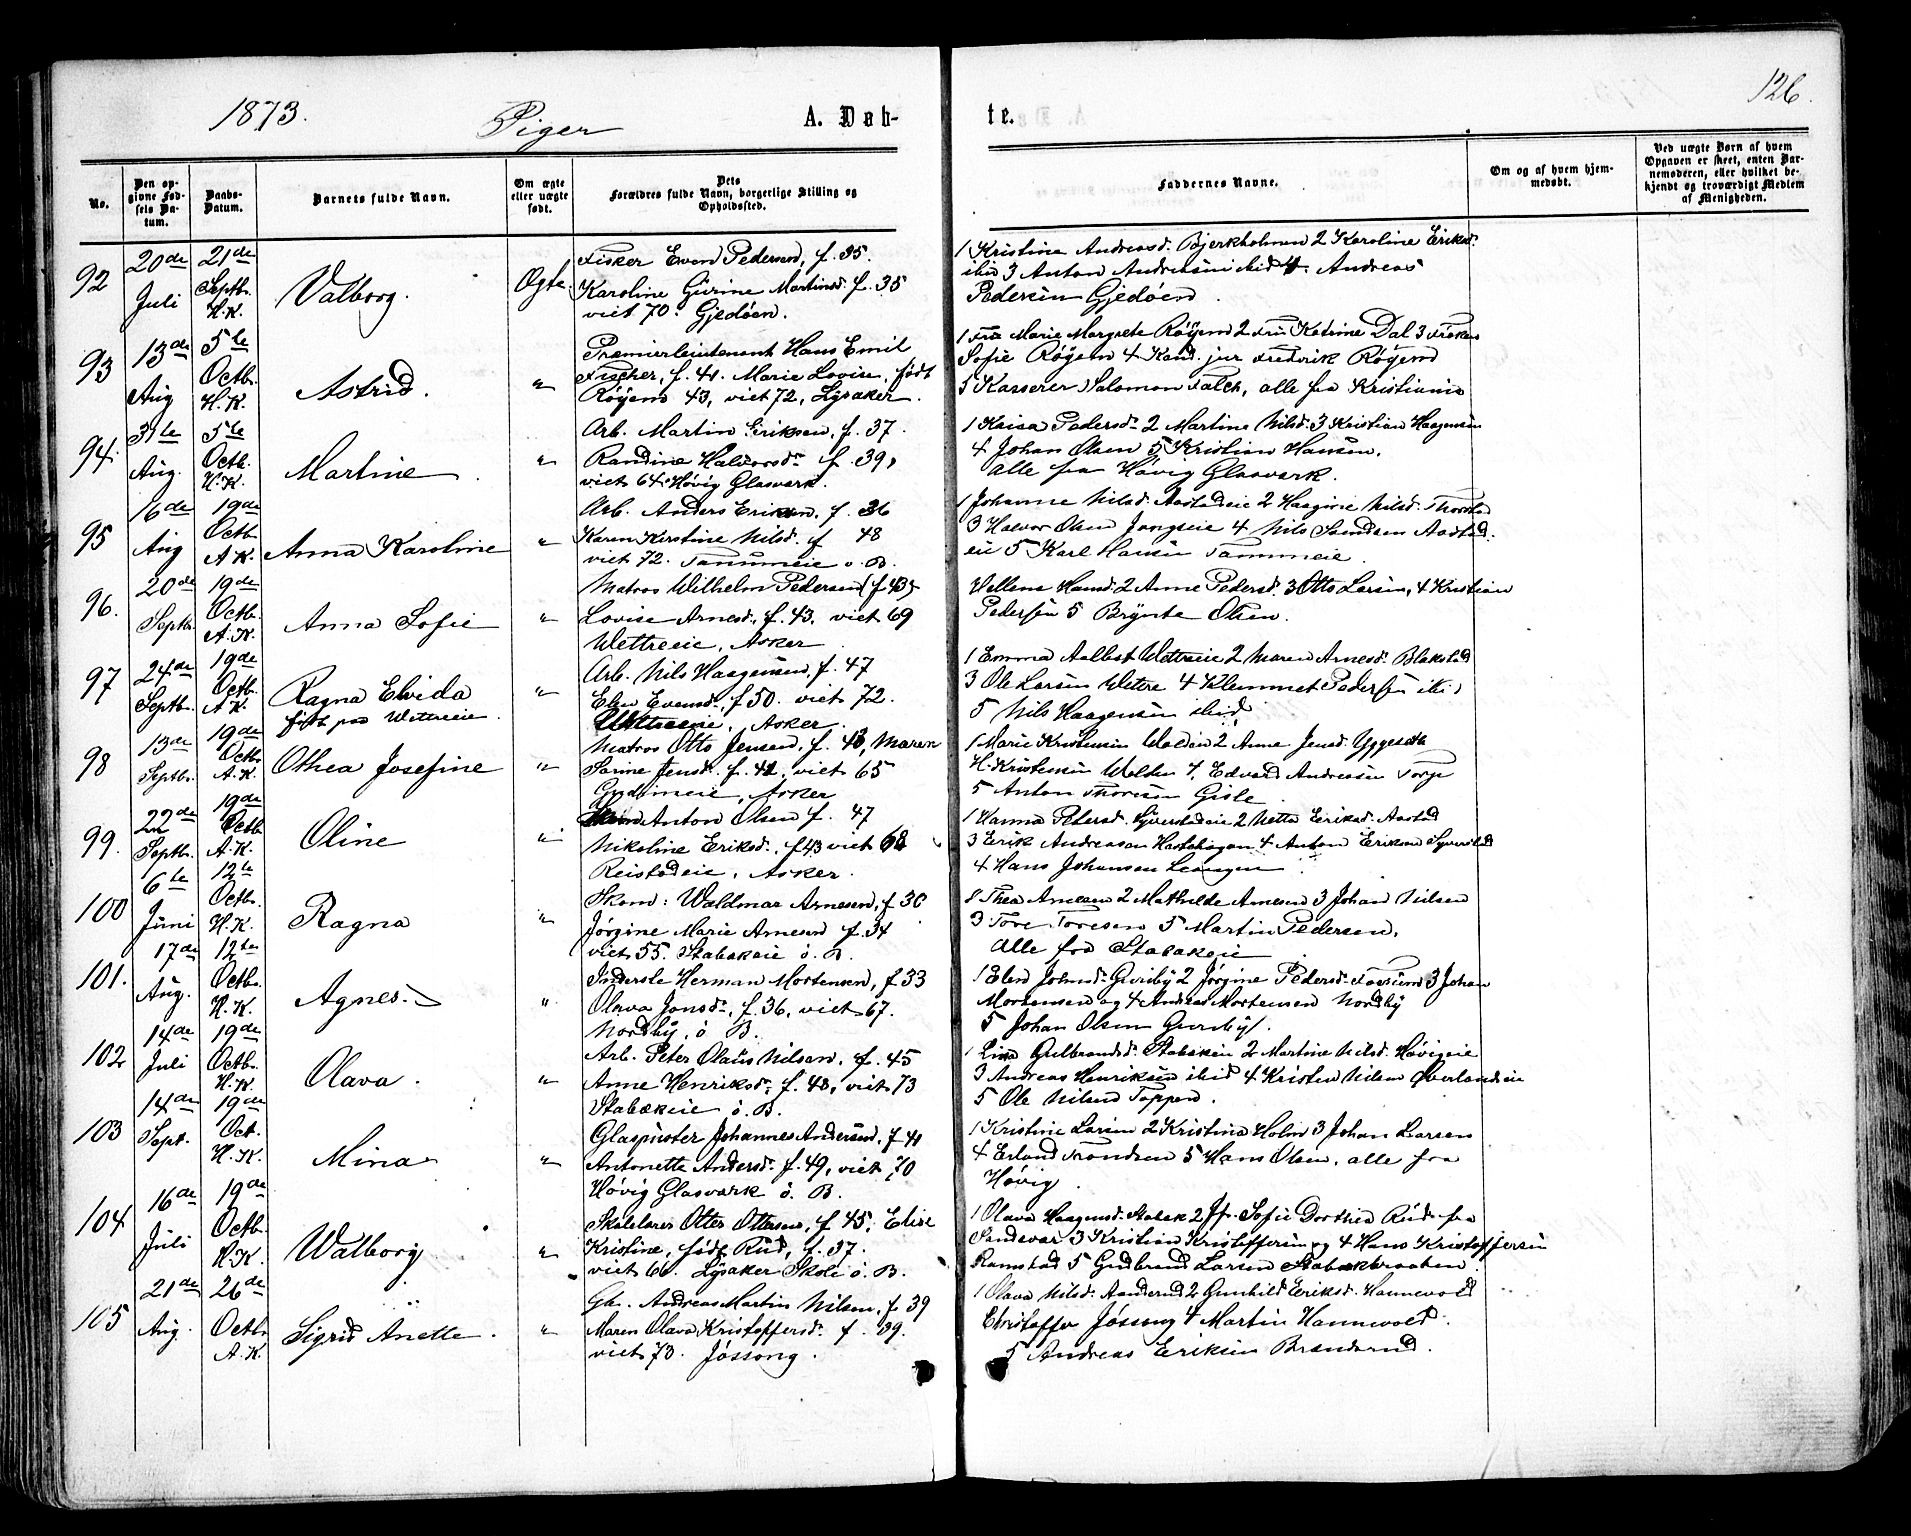 1873.
Piger
A. Døb-
te.
126.
No.
Den op-
givne Fød-
sels Da-
tum.
Daabs-
Datum.
Barnets fulde Navn.
Om ægte
eller uægte
født.
Dets
Forældres fulde Navn, borgerlige Stilling og
Opholdssted.
Faddernes Navne.
Om og af hvem hjem-
medøbt.
Ved uægte Børn af hvem
Opgaven er skeet, enten Bar-
nemoderen, eller hvilket be-
kjendt og troværdigt Medlem
af Menigheden.
92
20de
Juli
21de
Septbr.
H.K.
Valborg.
Ægte.
Fisker Even Pedersen, f. 35.
Karoline Gurine Martinsd. f. 35
viet 70. Gjedøen.
1 Kristine Andreasd. Bjerkholmen 2 Karoline Eriksd.
ibid 3 Anton Andreasen ibid 4. Andreas
Pedersen Gjedøen.
93
13de
Aug
5te
Octb.
H.K.
Astrid.
"
Premierleutenant Hans Emil
Fischer, f. 41. Marie Lovise, født
Røyem 43, viet 72, Lysaker.
1 Fru Marie Margrete Røyem 2 Fru Katrine Dal 3 Frøken
Sofie Røyem 4 Kand. jur Fredrik Røyem
5 Kasserer Salomon Falck, alle fra Kristiania
94.
31te
Aug.
5te
Octb.
H.K.
Martine
"
Arb. Martin Eriksen, f. 37.
Randine Halvorsd. f. 39,
viet 64. Høvig Glasverk.
1 Kaisa Pedersd. 2 Martine Nilsd. 3 Kristian Haagensen
4 Johan Olsen 5 Kristian Hansen.
alle fra Høvig Glasverk.
95
16de
Aug
19de
Octb
A.K.
Anna Karoline
"
Arb. Anders Eriksen, f. 36
Karen Kirstine Nilsd. f 48
viet 72. Tanumeie ø. B.
1 Johanne Nilsd. Aastadeie 2 Haagine Nilsd.
3 Halvor Olsen Jongseie 4 Nils Sem̃dsen Aastad-
eie 5 Karl Hansen Tanumeie.
96.
20de
Septb.
19de
Octb.
A.K.
Anna Sofie
"
Matros Wilhelm Pedersen (f. 43)
Lovise Arnesd., f. 43, viet 69
Wettreeie, Asker
Hellene Hansd. 2 Anne Pedersd. 3 Otto Larsen, 4 Kristian
Pedersen 5 Brynte Olsen.
97
24de
Septb.
19de
Octb.
A.K.
Ragna Elvida
født paa Wettreeie.
"
Arb. Nils Haagensen, f. 47
Elen Evensd., f. 50. viet 72.
Wettreeie, Asker.
1 Emma Aalbert Wettreeie 2 Maren Arnesd. Blakstad
3 Ole Larsen Wetre 4 Klemmet Pedersen ibid
5 Nils Haagensen ibid.
98
13de
Septbr.
19de
Octb.
A.K.
Othea Josefine
"
Matros Otto Jensen, f. 43, Maren
Sorine Jensd. f. 42, viet 65
Gudimeie, Asker
1 Marie Kristensen Walden 2 Anne Jensd. Yggeseth
H. Kristensen Walden 4. Edvard Andreasen Torp
5 Anton Thoresen Gisle.
99.
22de
Septbr.
19de
Octb
A.K.
Oline
"
Anton Olsen f. 47
Nikoline Eriksd., f. 43 viet 68
Reistadeie, Asker.
1 Hanna Pedersd. Syverstadeie 2 Netta Eriksd. Aastad
3 Erik Andreasen Hastehagen 4 Anton Eriksen Syverstad
4 Hans Johansen Leangen.
100
6te
Juni
12te
Octb.
H.K.
Ragna
"
Skom: Waldmar Arnesen, f 30
Jørgine Marie Arnesen f. 34
viet 55. Stabækeie ø. B.
1 Thea Arnesen 2 Mathilde Arnesen 3 Johan Nilsen
3 Tore Toresen 5 Martin Pedersen.
alle fra Stabækeie
101.
17de
Aug.
12te
Octb.
H.K.
Agnes.
"
Inderste Herman Mortensen, f. 33
Olava Jonsd., f. 36, viet 67.
Nordby, ø B.
1 Elen Johnsd. Gurihy 2 Jørgine Pedersd. 3 Johan
Mortensen og 4 Andreas Mortensen Nordby
5 Johan Olsen Gurihy.
102
14de
Juli
19de
Octb.
H.K.
Olava.
"
Arb. Peter Olaus Nilsen, f. 45
Anne Henriksd. f. 48, viet 73
Stabækeie ø. B.
1 Lina Gulbrandsd. Stabækeie 2 Martine Nilsd. Høvigeie
3 Andreas Henriksen ibid 4 Kristen Nilsen Øverlandseie
5 Ole Nilsen Toppen.
103
14de
Sept.
19de
Oct.
H.K.
Mina
"
Glaspuster Johannes Andersen, f 41
Antonette Andersd. f. 49, viet 70
Høvig Glasverk ø. B.
1 Kristine Larsen 2 Kristina Holm 3 Johan Larsen
4 Erland Trondsen 5 Hans Olsen, alle fra
Høvig.
104
16de
Juli
19de
Octb.
H.K.
Walborg
"
Skolelærer Otter Ottersen, f. 45, Elise
Kristine, født Rud, f. 37.
viet 66. Lysaker Skole ø. B.
1 Olava Haagensd. Stabæk 2 Jf. Sofie Dorthea Rud fra
Sandevar 3 Kristian Kristoffersen og 4 Hans Kristoffersen
Ramstad 5 Gudbrand Larsen Stabækbraaten.
105
21de
Aug.
26de
Octb.
A.K.
Sigrid Anette.
"
Gbr. Andreas Martin Nilsen, f. 39
Maren Olava Kristoffersd. f. 39.
viet 73. Jøssong.
1 Olava Nilsd. Aanderud 2 Gunhild Eriksd. Hannevold
Christoffer Jøssong 4 Martin Hannevold.
5 Andreas Eriksen Brenderud.